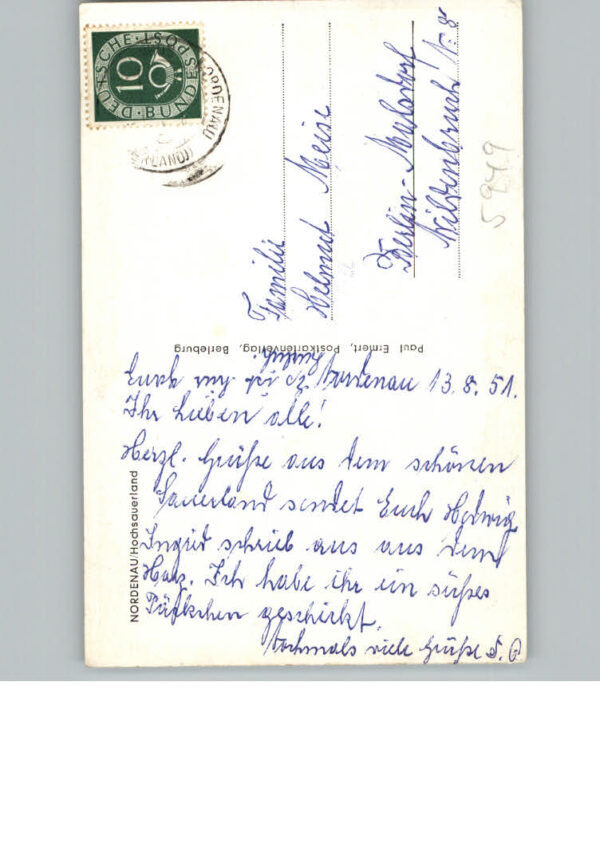 DEUTSCHE · BUNDESPOST
10
NORDENAU
Familie
Helmut Meise
Berlin-Mahlsdorf
Wildenbruch Nr 8
5949
Paul Ermert, Postkartenverlag, Berleburg
NORDENAU/Hochsauerland
Nordenau 13.8.51.
Ihr Lieben alle!
Herzl. Grüße aus dem schönen
Sauerland sendet Euch Hedwig
Ingrid schrieb aus aus dem
Harz. Ich habe ihr ein süßes
Päckchen geschickt.
Nochmals viele Grüße